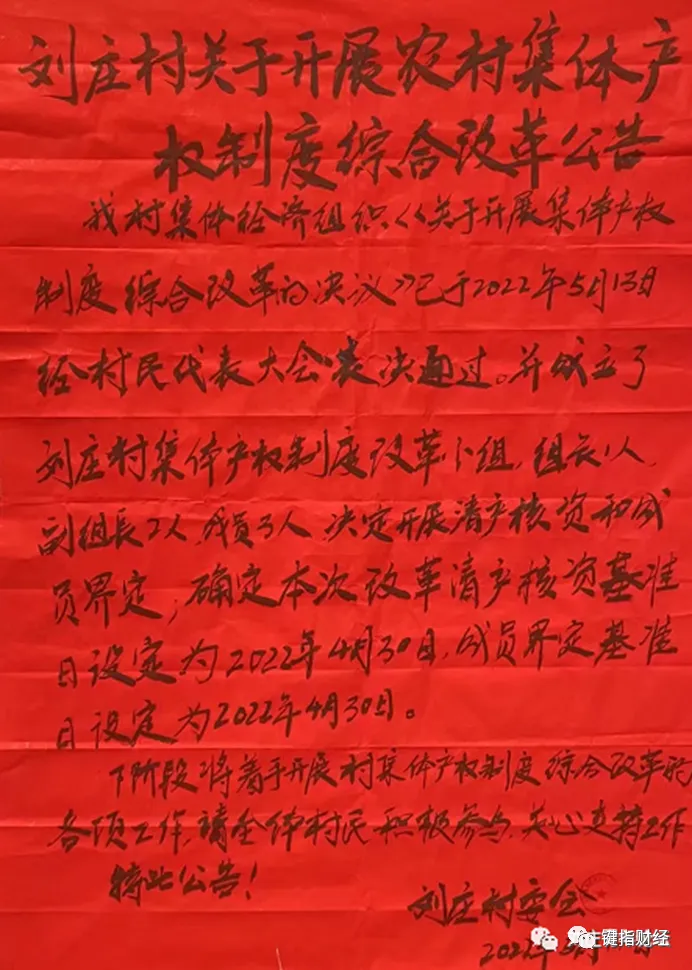 刘庄村关于开展农村集体产
权制度综合改革公告
我村集体经济组织《关于开展集体产权
制度综合改革的决议》已于2022年5月13日
经村民代表大会表决通过。并成立了
刘庄村集体产权制度改革小组,组长1人,
副组长2人,成员3人,决定开展清产核资和成
员界定;确定本次改革清产核资基准
日设定为2022年4月30日,成员界定基准
日设定为2022年4月30日。
下阶段将着手开展村集体产权制度综合改革的
各项工作,请全体村民积极参与,关心支持工作
特此公告!
刘庄村委会
2022年
庄键指财经